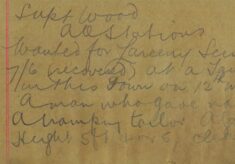 Supt Wood
All Stations
Wanted for Larceny
7/6 (recovered) at a
in this Town on 12th
A man who gave
A tramping tailor
Height 5ft